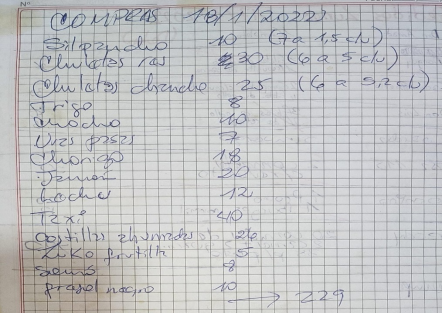 COMPRAS 18/1/2022
Silpancho 10 (7 a 1,5 c/u)
Chuletas res 30 (6 a 5 c/u)
Chuletas chancho 25 (6 a 5,2 c/u)
Trigo 8
Mocho 10
Uvas pasas 7
Chorizo 18
Jamon 20
Leche 12
Taxi 40
Costillas ahumadas 26
5
8
frejol negro 10 → 229